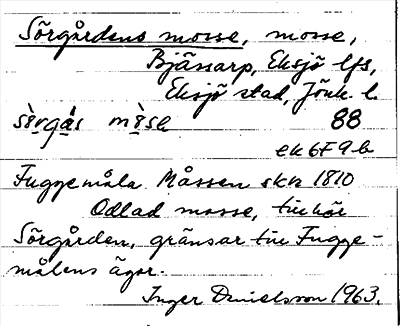 Sörgårdens mosse, mosse,
Bjässarp, Eksjö lfs,
Eksjö stad, Jönk. l.
88
ek 6F 9 b
Fuggemåla Måssen skn 1810
Odlad mosse, tillhör
Sörgården, gränsar till Fugge-
målens ägor.
Inger Danielsson 1963.